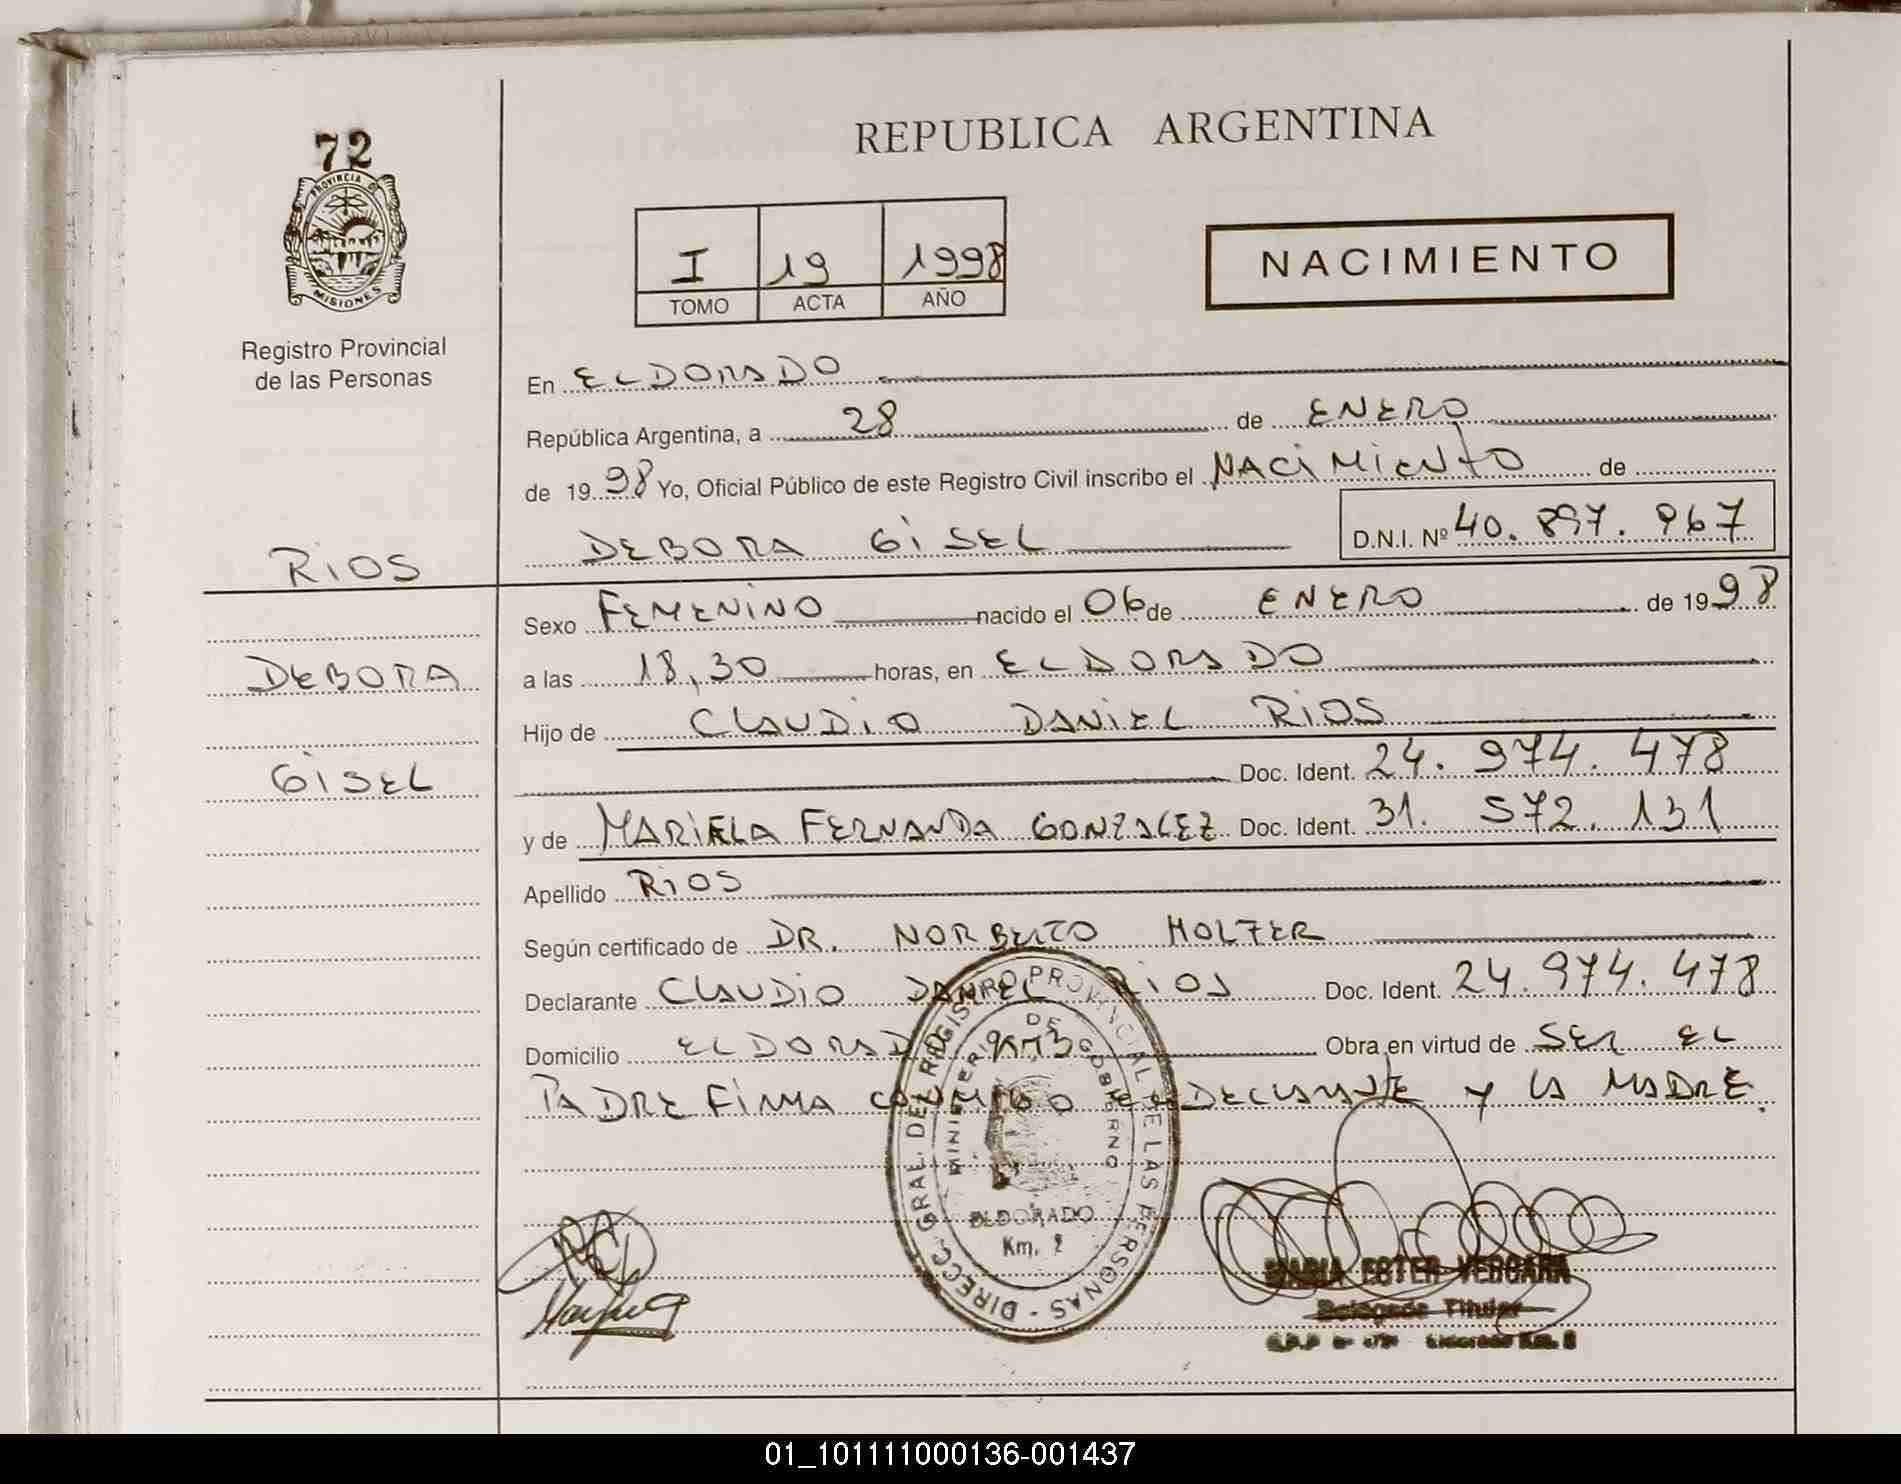 72
PROVINCIA DE
MISIONES
Registro Provincial
de las Personas
REPUBLICA ARGENTINA
I 19 1998
TOMO ACTA AÑO
NACIMIENTO
En ELDORADO
República Argentina, a 28 de ENERO
de 19 98 Yo, Oficial Público de este Registro Civil inscribo el NACIMIENTO de
DEBORA GISEL D.N.I. Nº 40.897.967
RIOS
Sexo FEMENINO nacido el 06 de ENERO de 19 98
DEBORA
a las 18,30 horas, en ELDORADO
Hijo de CLAUDIO DANIEL RIOS
GISEL
Doc. Ident. 24.974.478
y de MARIELA FERNANDA GONZALEZ Doc. Ident. 31.572.131
Apellido RIOS
Según certificado de DR. NORBERTO HOLZER
Declarante CLAUDIO DANIEL RIOS Doc. Ident. 24.974.478
Domicilio ELDORADO Obra en virtud de SER EL
PADRE FIRMA CONMIGO EL DECLARANTE Y LA MADRE.
DIRECC. GRAL. DEL REGISTRO PROVINCIAL DE LAS PERSONAS
MINISTERIO DE GOBIERNO
ELDORADO
Km. 2
MARIA ESTER VERGARA
Delegada Titular
01_101111000136-001437